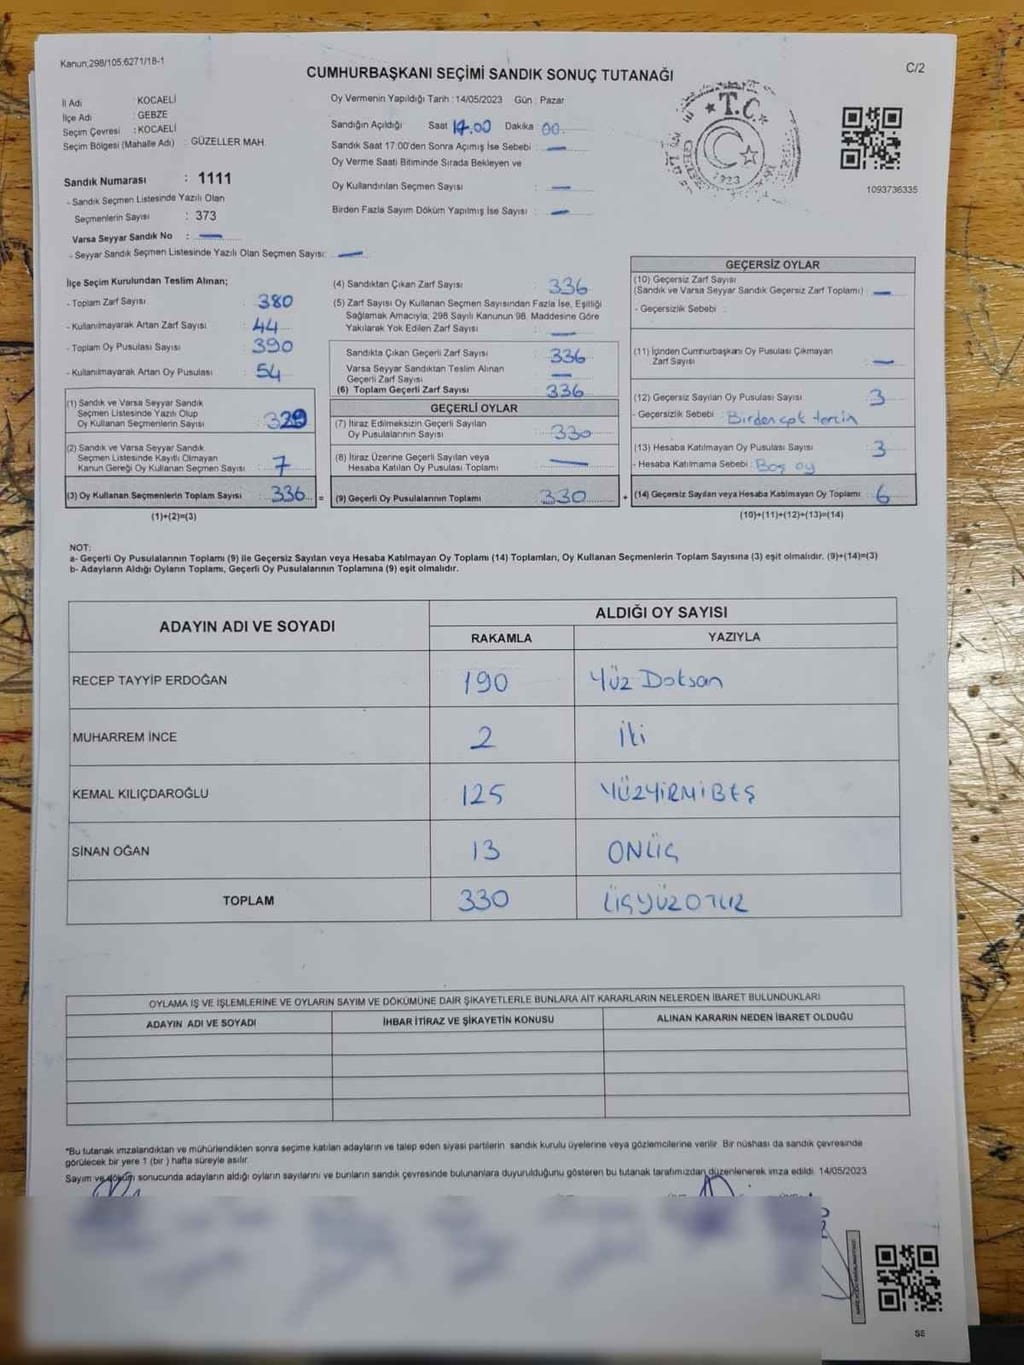 Kanun,298/105;6271/18-1
C/2
CUMHURBAŞKANI SEÇİMİ SANDIK SONUÇ TUTANAĞI
İl Adı KOCAELİ
İlçe Adı GEBZE
Seçim Çevresi : KOCAELİ
Seçim Bölgesi (Mahalle Adı) : GÜZELLER MAH.
Sandık Numarası : 1111
- Sandık Seçmen Listesinde Yazılı Olan
Seçmenlerin Sayısı : 373
Varsa Seyyar Sandık No : —
- Seyyar Sandık Seçmen Listesinde Yazılı Olan Seçmen Sayısı: —
Oy Vermenin Yapıldığı Tarih : 14/05/2023 Gün : Pazar
Sandığın Açıldığı Saat 17.00 Dakika 00
Sandık Saat 17:00'den Sonra Açımış İse Sebebi : —
Oy Verme Saati Bitiminde Sırada Bekleyen ve
Oy Kullandırılan Seçmen Sayısı : —
Birden Fazla Sayım Döküm Yapılmış İse Sayısı : —
T.C.
1923
1093736335
İlçe Seçim Kurulundan Teslim Alınan;
- Toplam Zarf Sayısı 380
- Kullanılmayarak Artan Zarf Sayısı 44
- Toplam Oy Pusulası Sayısı 390
- Kullanılmayarak Artan Oy Pusulası 54
(1) Sandık ve Varsa Seyyar Sandık
Seçmen Listesinde Yazılı Olup
Oy Kullanan Seçmenlerin Sayısı 329
(2) Sandık ve Varsa Seyyar Sandık
Seçmen Listesinde Kayıtlı Olmayan
Kanun Gereği Oy Kullanan Seçmen Sayısı 7
(3) Oy Kullanan Seçmenlerin Toplam Sayısı 336 =
(1)+(2)=(3)
(4) Sandıktan Çıkan Zarf Sayısı 336
(5) Zarf Sayısı Oy Kullanan Seçmen Sayısından Fazla İse, Eşitliği
Sağlamak Amacıyla; 298 Sayılı Kanunun 98. Maddesine Göre
Yakılarak Yok Edilen Zarf Sayısı —
Sandıkta Çıkan Geçerli Zarf Sayısı 336
Varsa Seyyar Sandıktan Teslim Alınan
Geçerli Zarf Sayısı —
(6) Toplam Geçerli Zarf Sayısı 336
GEÇERLİ OYLAR
(7) İtiraz Edilmeksizin Geçerli Sayılan
Oy Pusulalarının Sayısı 330
(8) İtiraz Üzerine Geçerli Sayılan veya
Hesaba Katılan Oy Pusulası Toplamı —
(9) Geçerli Oy Pusulalarının Toplamı 330 +
GEÇERSİZ OYLAR
(10) Geçersiz Zarf Sayısı
(Sandık ve Varsa Seyyar Sandık Geçersiz Zarf Toplamı) : —
- Geçersizlik Sebebi :
(11) İçinden Cumhurbaşkanı Oy Pusulası Çıkmayan
Zarf Sayısı —
(12) Geçersiz Sayılan Oy Pusulası Sayısı 3
- Geçersizlik Sebebi : Birden çok tercih
(13) Hesaba Katılmayan Oy Pusulası Sayısı 3
- Hesaba Katılmama Sebebi : Boş oy
(14) Geçersiz Sayılan veya Hesaba Katılmayan Oy Toplamı 6
(10)+(11)+(12)+(13)=(14)
NOT:
a- Geçerli Oy Pusulalarının Toplamı (9) ile Geçersiz Sayılan veya Hesaba Katılmayan Oy Toplamı (14) Toplamları, Oy Kullanan Seçmenlerin Toplam Sayısına (3) eşit olmalıdır. (9)+(14)=(3)
b- Adayların Aldığı Oyların Toplamı, Geçerli Oy Pusulalarının Toplamına (9) eşit olmalıdır.
ADAYIN ADI VE SOYADI
ALDIĞI OY SAYISI
RAKAMLA YAZIYLA
RECEP TAYYİP ERDOĞAN 190 Yüz Doksan
MUHARREM İNCE 2 İki
KEMAL KILIÇDAROĞLU 125 YÜZYİRMİBEŞ
SİNAN OĞAN 13 ONÜÇ
TOPLAM 330 ÜÇYÜZOTUZ
OYLAMA İŞ VE İŞLEMLERİNE VE OYLARIN SAYIM VE DÖKÜMÜNE DAİR ŞİKAYETLERLE BUNLARA AİT KARARLARIN NELERDEN İBARET BULUNDUKLARI
ADAYIN ADI VE SOYADI İHBAR İTİRAZ VE ŞİKAYETİN KONUSU ALINAN KARARIN NEDEN İBARET OLDUĞU
*Bu tutanak imzalandıktan ve mühürlendikten sonra seçime katılan adayların ve talep eden siyasi partilerin sandık kurulu üyelerine veya gözlemcilerine verilir. Bir nüshası da sandık çevresinde
görülecek bir yere 1 (bir) hafta süreyle asılır.
Sayım ve döküm sonucunda adayların aldığı oyların sayılarını ve bunların sandık çevresinde bulunanlara duyurulduğunu gösteren bu tutanak tarafımızdan düzenlenerek imza edildi. 14/05/2023
SE